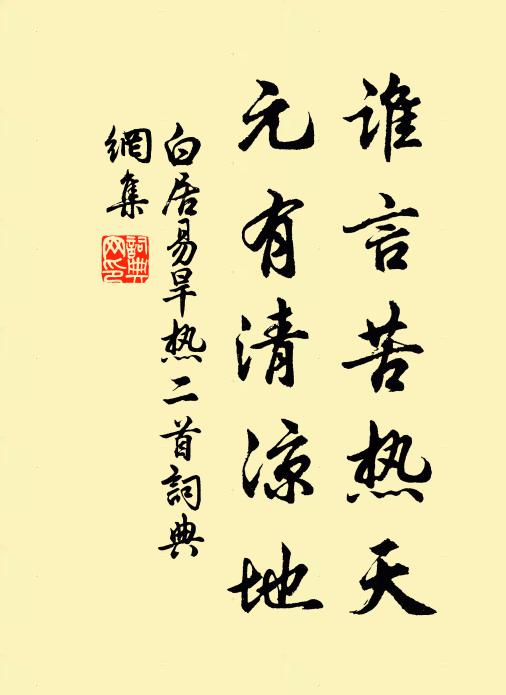 谁言苦热天
元有清凉地
白居易旱热二首詞典
網集
詞典网印